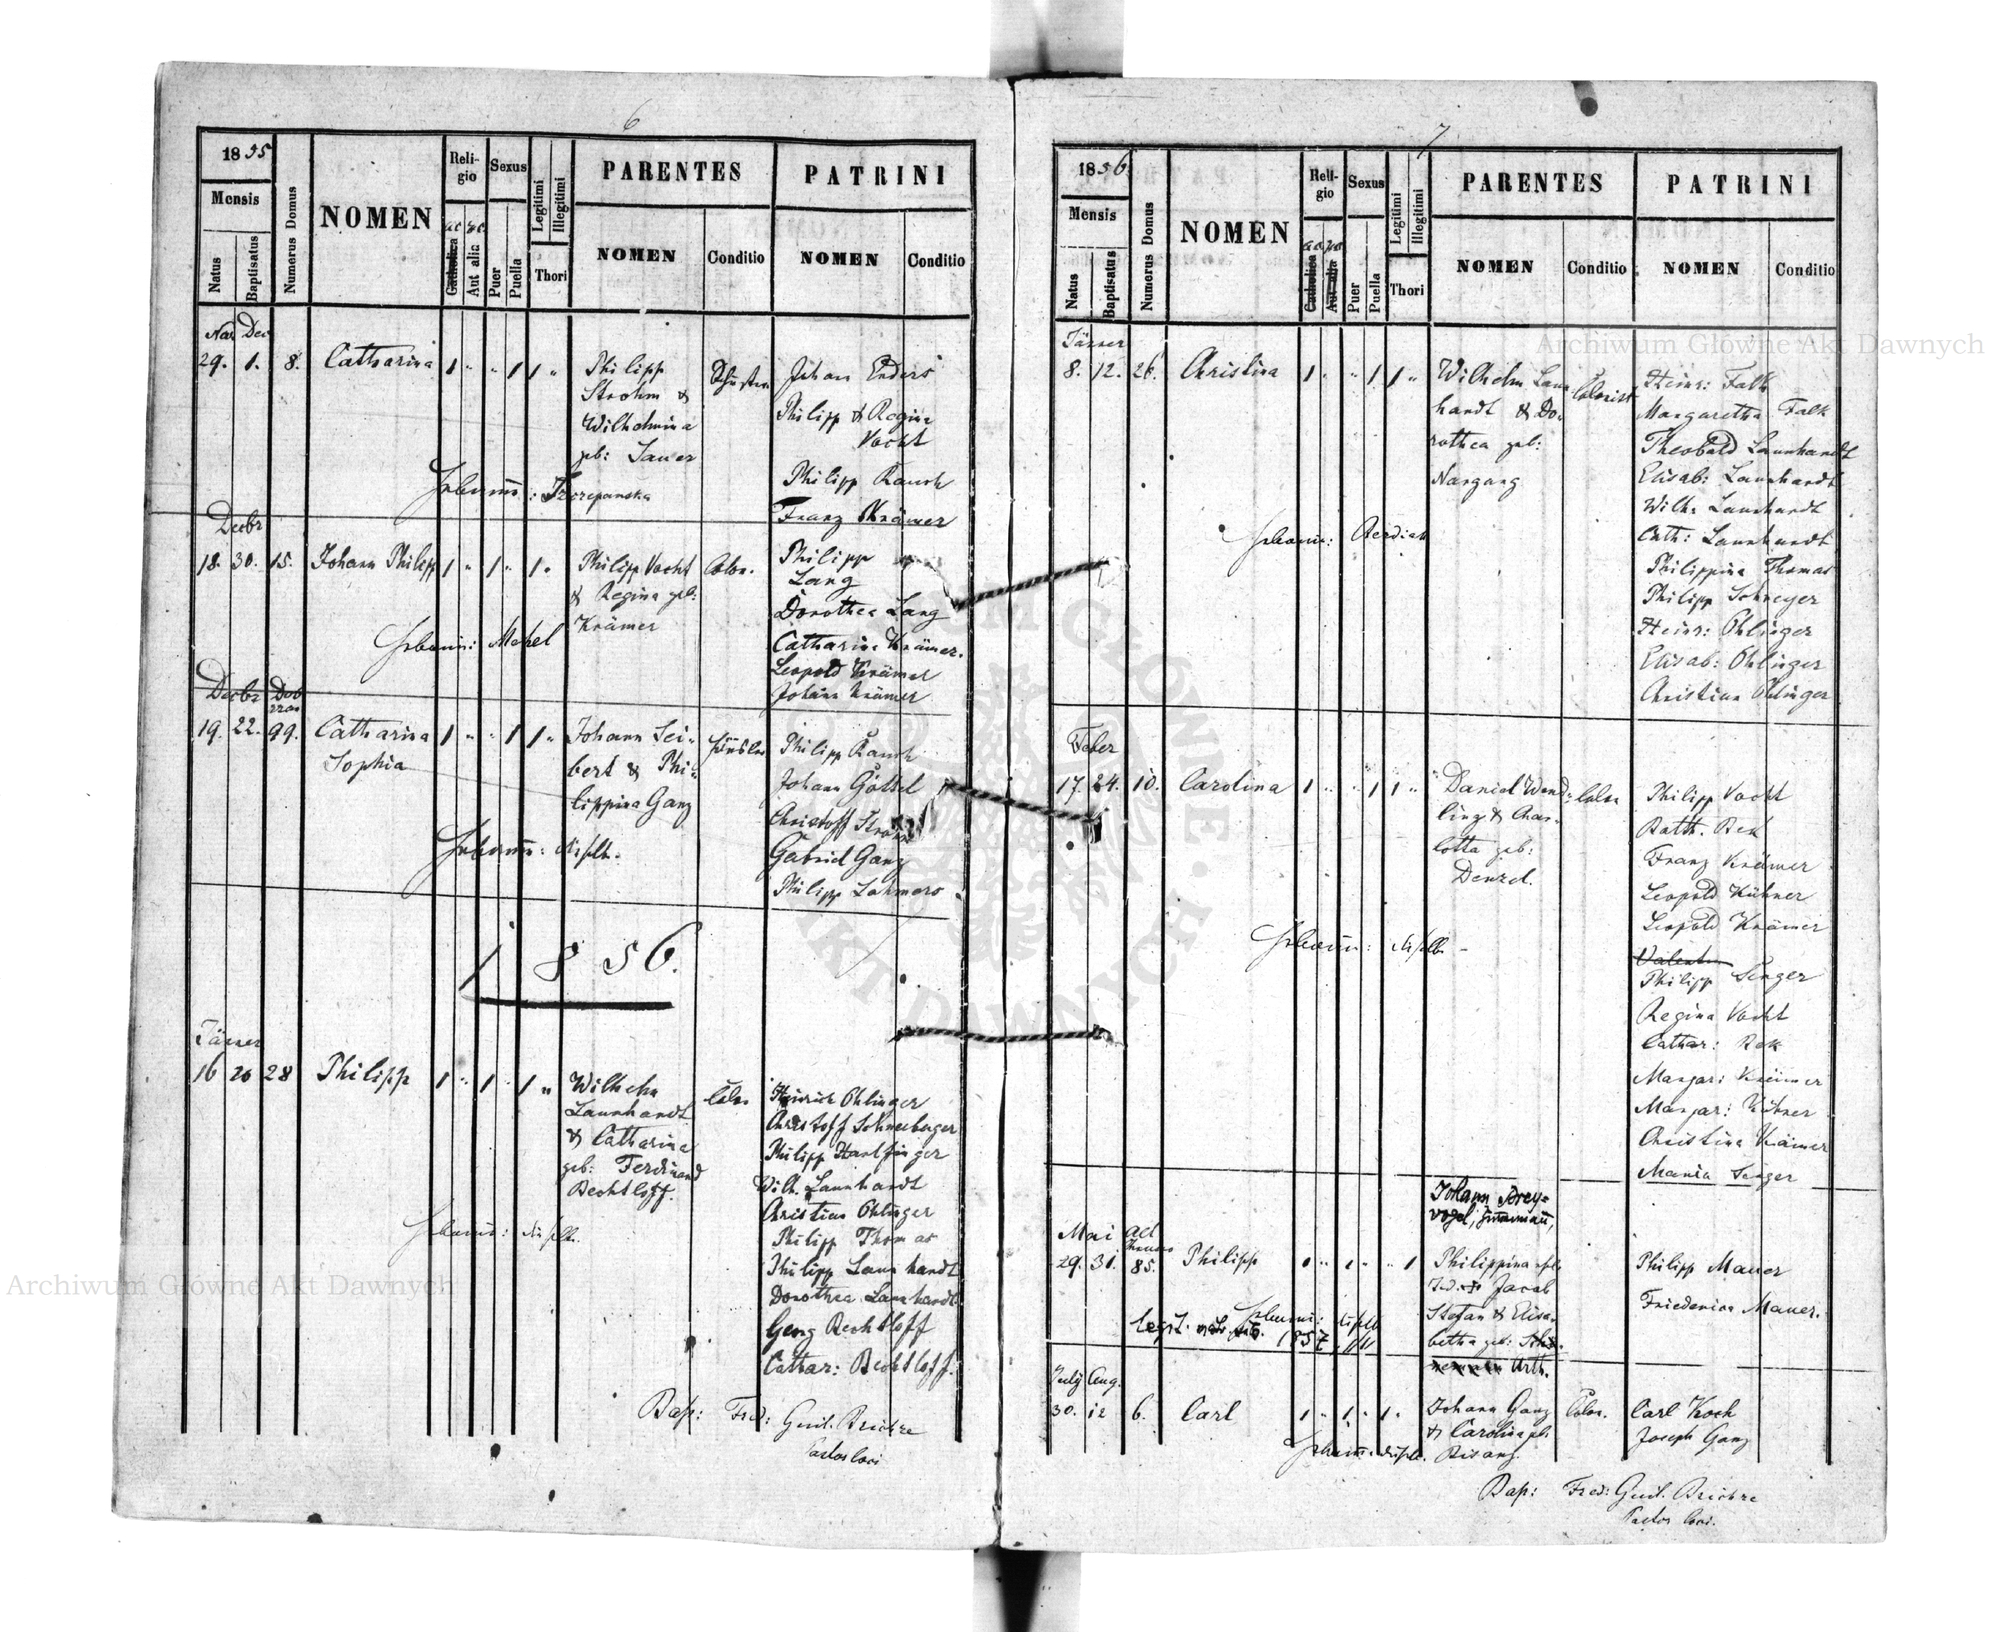 6
1855
Mensis
Natus
Baptisatus
Numerus Domus
NOMEN
Religio
Catholica
Aut alia
Sexus
Puer
Puella
Legitimi
Illegitimi
Thori
PARENTES
NOMEN
Conditio
PATRINI
NOMEN
Conditio
Nov Dec
29. 1. 8. Catharina 1 " " 1 1 "
Philipp
Strohm &
Wilhelmina
geb: Sauer
Schuster
Johan Enders
Philipp & Regina
Vocht
Philipp Rauch
Franz Krämer
Hebamme: Szczepanska
Decbr
18. 30. 15. Johann Philipp 1 " 1 " 1 "
Philipp Vocht
& Regina geb:
Krämer
Colon.
Philipp
Lang
Dorothea Lang
Catharina Krämer.
Leopold Krämer
Johann Krämer
Decbr
19. 22. 99. Catharina
Sophia
1 " " 1 1 "
Johann Sei-
bert & Phi-
lippina Ganz
Philipp Rauch
Johann Göttel
Christoff
Gabriel Ganz
Philipp
1856.
Jänner
16 20 28 Philipp 1 " 1 " 1 "
Wilhelm
Launhardt
& Catharina
geb: Ferdinand
Bechtloff.
Colon
Heinrich Ohlinger
Christoff Schneeberger
Philipp
Wilh. Launhardt
Christian Ohlinger
Philipp Thomas
Philipp Launhardt
Dorothea Launhardt
Georg Bechtloff
Cathar: Bechtloff.
Bap: Fred: Guil.
Pastor loci
7
1856
Mensis
Natus
Baptisatus
Numerus Domus
NOMEN
Religio
Catholica
Aut alia
Sexus
Puer
Puella
Legitimi
Illegitimi
Thori
PARENTES
NOMEN
Conditio
PATRINI
NOMEN
Conditio
Jänner
8. 12. 26. Christina 1 " " 1 1 "
Wilhelm Laun-
hardt & Do-
rothea geb:
Nargang
Colonist
Heinr: Falk
Margaretha Falk
Theobald Launhardt
Elisab: Launhardt
Wilh: Launhardt
Cath: Launhardt
Philippina Thomas
Philipp Schreyer
Heinr: Ohlinger
Elisab: Ohlinger
Christina Ohlinger
Hebamme:
Feber
17. 24. 10. Carolina 1 " " 1 1 "
Daniel Wend-
ling & Char-
lotta geb:
Denzel.
Colon
Philipp Vocht
Bath. Bek
Franz Krämer
Leopold Kühner
Leopold Krämer
Valentin
Philipp Senger
Regina Vocht
Cathar: Bek
Margar: Krämer
Margar: Kühner
Christina Krämer
Maria Senger
Johann Drey-
vogel,
Mai ad
29. 31. 85. Philipp 1 " 1 " " 1
Philippina
Jacob
Stefan & Elisa-
betha geb:
Arth.
Philipp Mauer
Friederica Mauer.
1857
July Aug.
30. 12 6. Carl 1 " 1 " 1 "
Johann Ganz
& Carolina geb
Bisanz
Colon.
Carl Koch
Joseph Ganz
Bap: Fred: Guil.
Pastor loci.
Archiwum Główne Akt Dawnych
Archiwum Główne Akt Dawnych